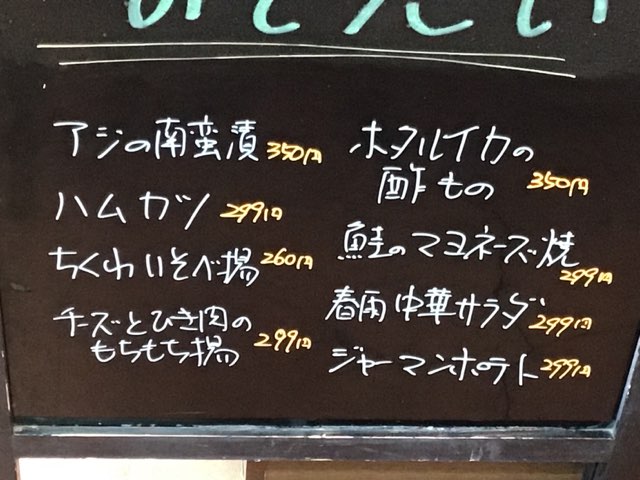 アジの南蛮漬 350円
ハムカツ 299円
ちくわいそべ揚 260円
チーズとひき肉の
もちもち揚 299円
ホタルイカの
酢もの 350円
鮭のマヨネーズ焼
299円
春雨中華サラダ 299円
ジャーマンポテト 299円